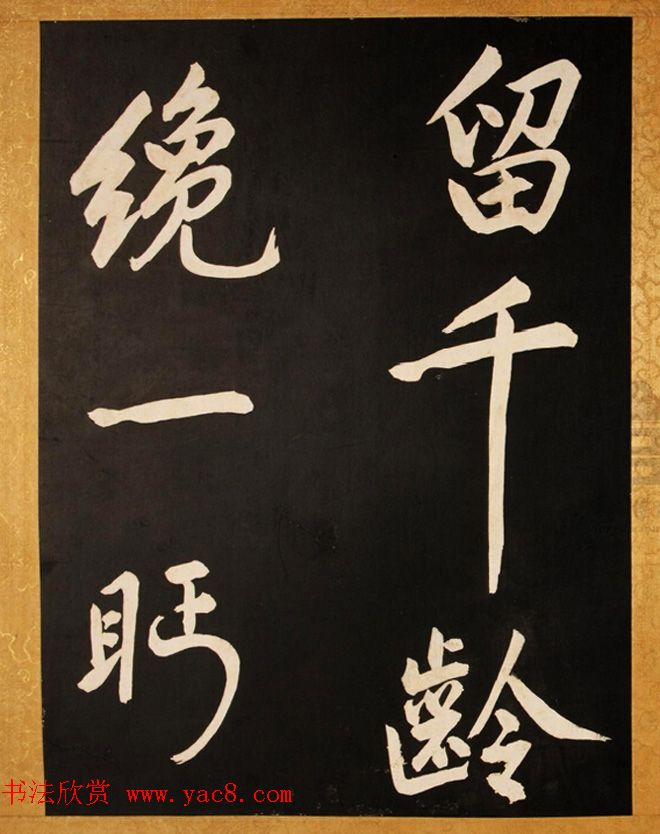 留千齡
纔一眄
书法欣赏 www.yac8.com